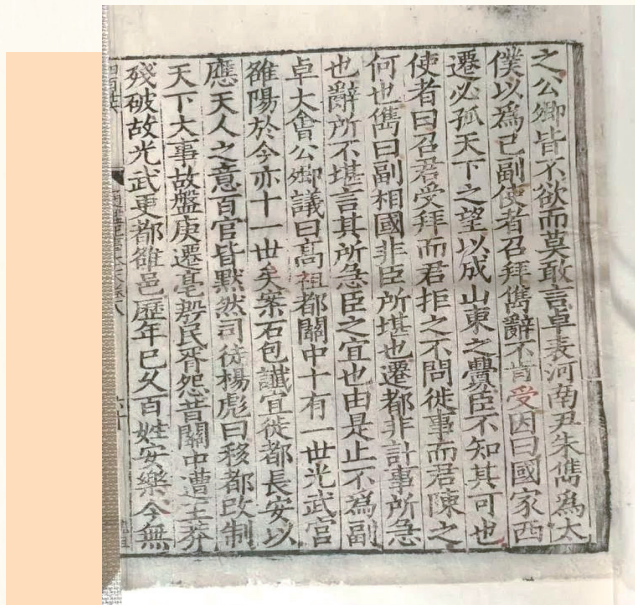 之公卿皆不欲而莫敢言卓表河南尹朱儁爲太
僕以爲己副使者召拜儁辭不肯受因曰國家西
遷必孤天下之望以成山東之釁臣不知其可也
使者曰召君受拜而君拒之不問徙事而君陳之
何也儁曰副相國非臣所堪也遷都非計事所急
也辭所不堪言其所急臣之宜也由是止不為副
卓大會公卿議曰高祖都關中十有一世光武宮
雒陽於今亦十一世矣案石包讖宜徙都長安以
應天人之意百官皆默然司徒楊彪曰移都改制
天下大事故盤庚遷亳殷民胥怨昔關中遭王莽
殘破故光武更都雒邑歷年已久百姓安樂今無